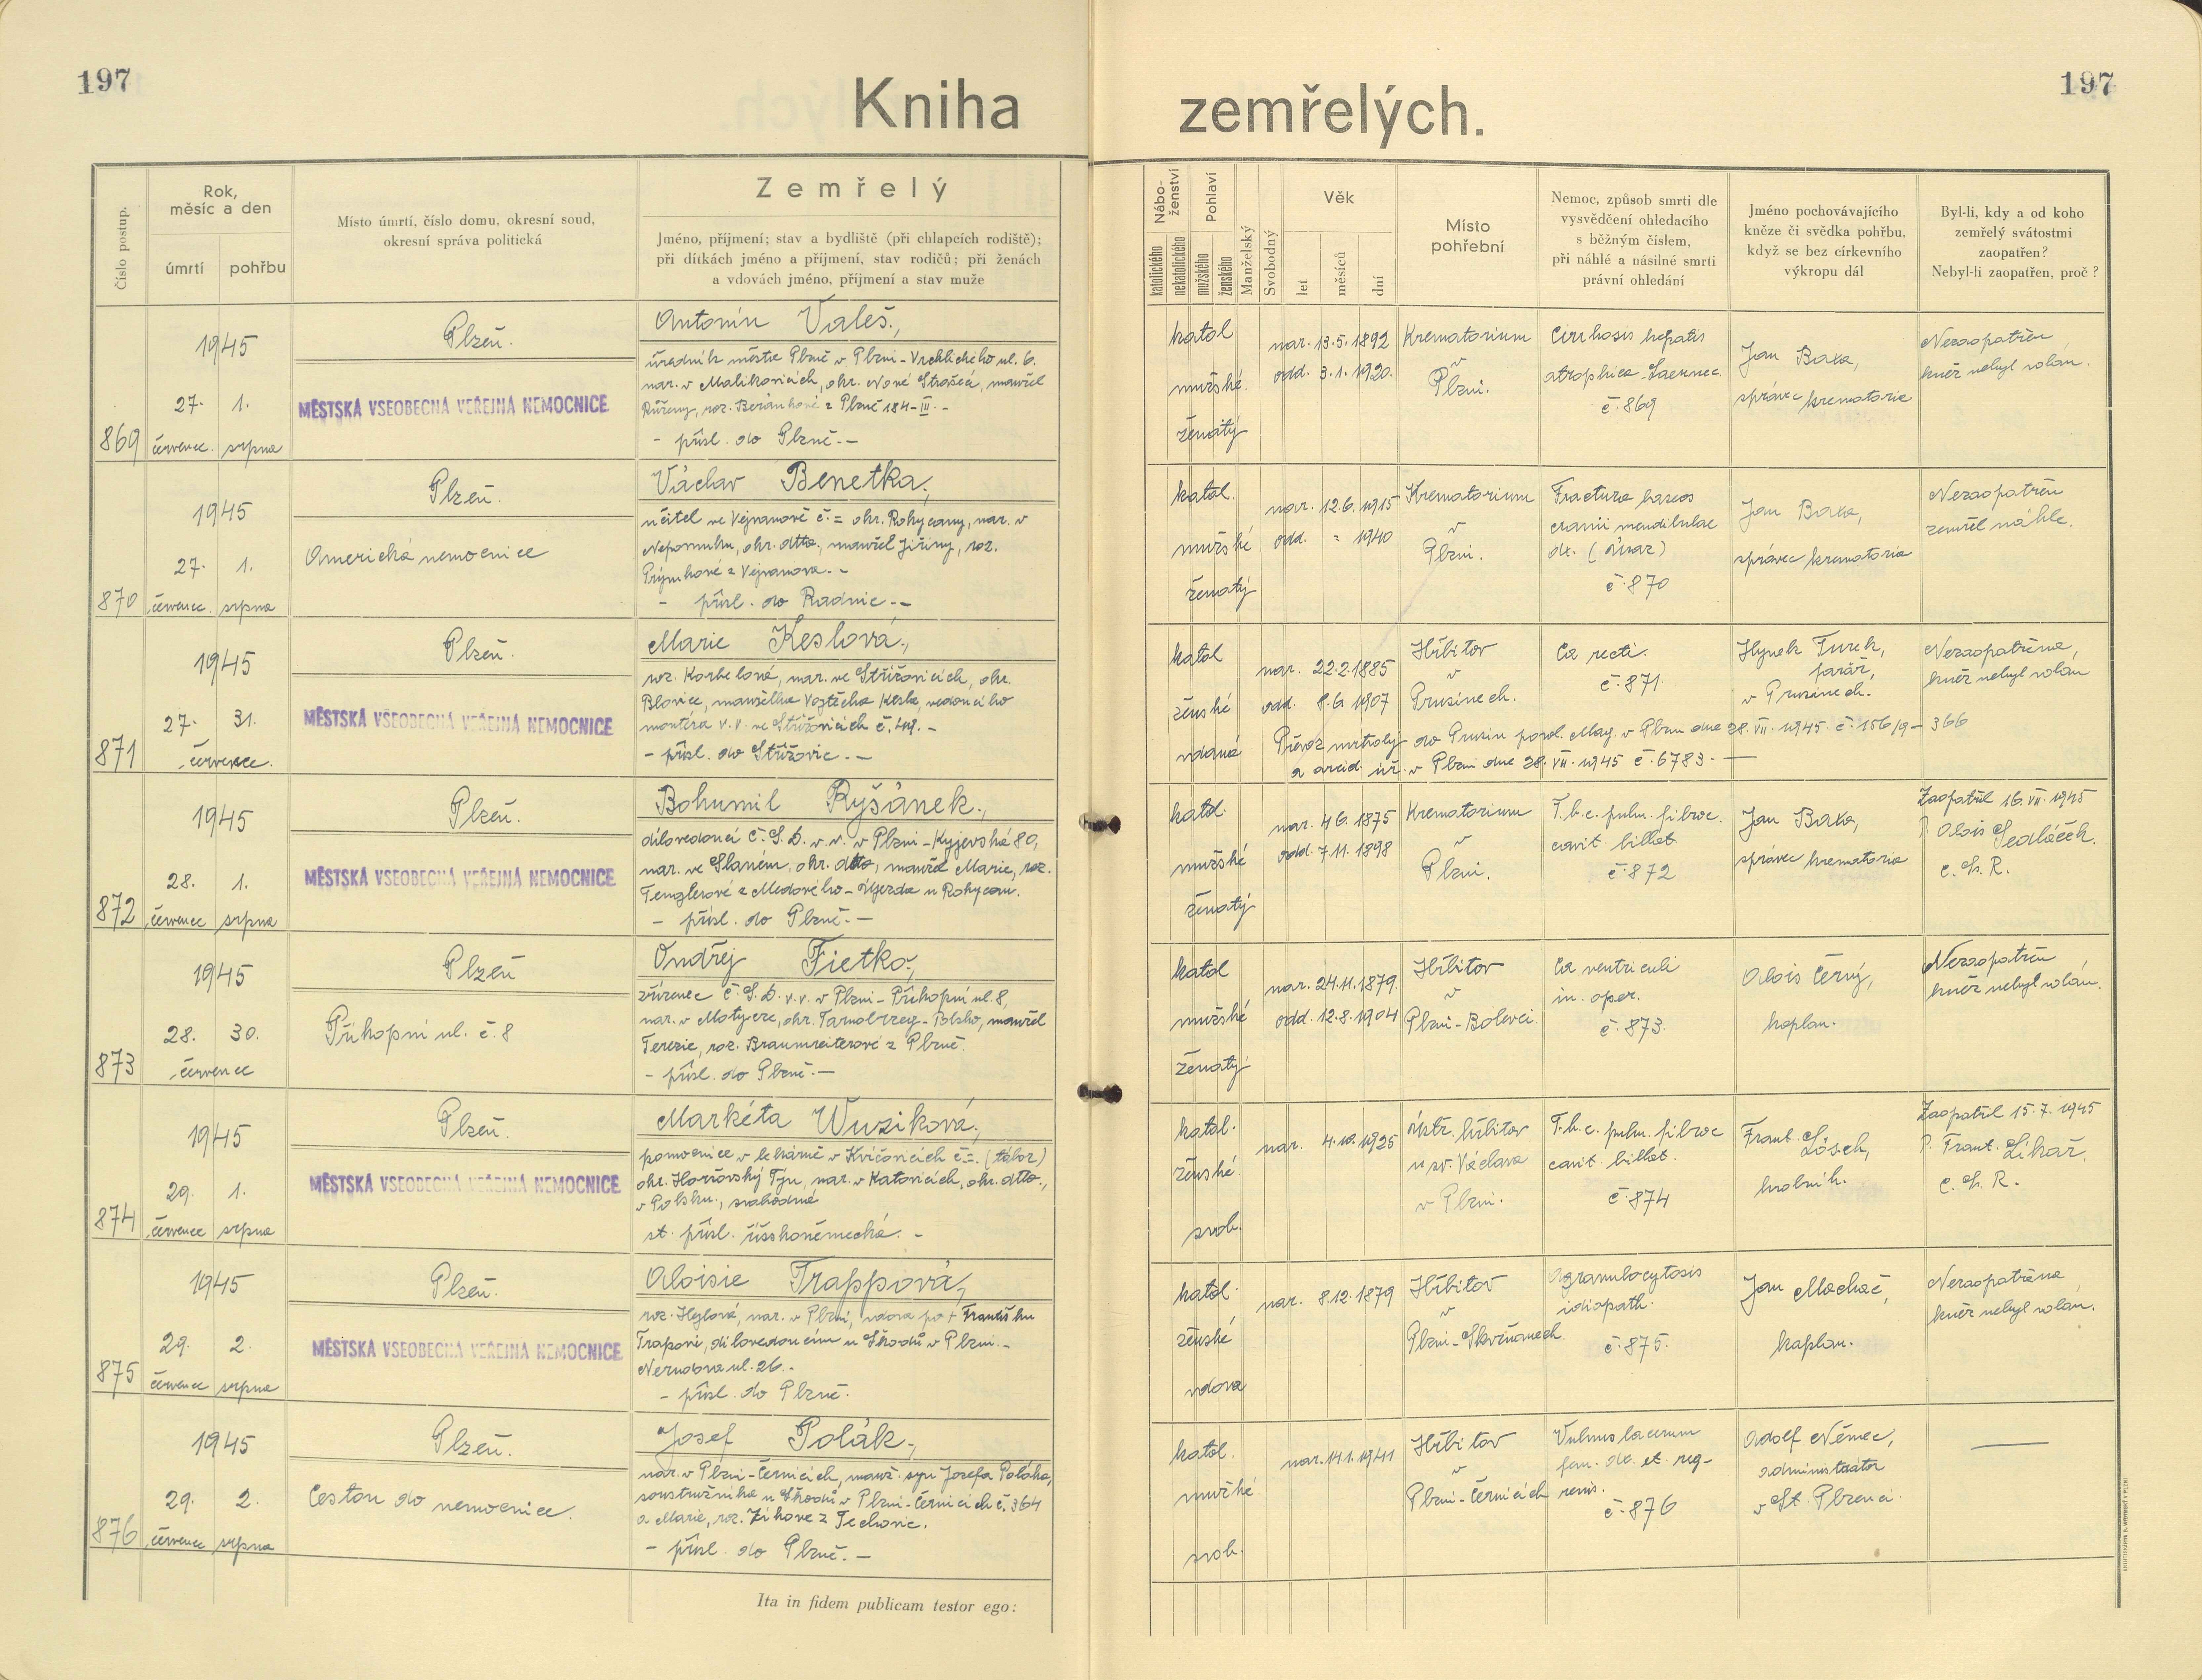 197
197
Kniha zemřelých.
Číslo postup.
Rok, měsíc a den
úmrtí
pohřbu
Místo úmrtí, číslo domu, okresní soud,
okresní správa politická
Zemřelý
Jméno, příjmení; stav a bydliště (při chlapcích rodiště);
při dítkách jméno a příjmení, stav rodičů; při ženách
a vdovách jméno, příjmení a stav muže
Nábo-
ženství
katolického
nekatolického
Pohlaví
mužského
ženského
Manželský
Svobodný
Věk
let
měsíců
dní
Místo
pohřební
Nemoc, způsob smrti dle
vysvědčení ohledacího
s běžným číslem,
při náhlé a násilné smrti
právní ohledání
Jméno pochovávajícího
kněze či svědka pohřbu,
když se bez církevního
výkropu dál
Byl-li, kdy a od koho
zemřelý svátostmi
zaopatřen?
Nebyl-li zaopatřen, proč?
869
1945
27. 1.
červenec srpna
Plzeň.
MĚSTSKÁ VŠEOBECNÁ VEŘEJNÁ NEMOCNICE
Antonín Valeš,
úředník města Plzně v Plzni-Vrchlického ul. 6.
nar. v Malíkovicích, okr. Nové Strašecí, manžel
Růženy, roz. Beránkové z Plzně 184-III.-
- přísl. do Plzně.-
katol
mužské.
ženatý
nar. 13.5.1892
odd. 3.1.1920.
Krematorium
v
Plzni.
Cirrhosis hepatis
atrophica Laennec.
č. 869
Jan Baxa,
správce krematoria
Nezaopatřen
kněz nebyl volán.
870
1945
27. 1.
červenec srpna
Plzeň.
Americká nemocnice
Václav Benetka,
učitel ve Vejvanově č.= okr. Rokycany, nar. v
Nepomuku, okr. dtto., manžel Jiřiny, roz.
z Vejvanova.-
- přísl. do Radnic.-
katol.
mužské
ženatý
nar. 12.6.1915
odd. = 1940
Krematorium
v
Plzni.
Fractura baseos
cranii mandibulae
dx. (úraz)
č. 870
Jan Baxa,
správce krematoria
Nezaopatřen
zemřel náhle.
871
1945
27. 31.
července.
Plzeň.
MĚSTSKÁ VŠEOBECNÁ VEŘEJNÁ NEMOCNICE
Marie Keslová,
roz. Korbelová, nar. ve Střížovicích, okr.
Blovice, manželka Vojtěcha Kesla, vedoucího
montéra v.v. ve Střížovicích č. 49.-
- přísl. do Střížovic.-
katol
ženské
vdaná
nar. 22.2.1885
odd. 8.6.1907
Hřbitov
v
Prusinech.
Ca recti.
č. 871.
Hynek Turek,
farář,
v Prusinech.
Nezaopatřena,
kněz nebyl volán
Převoz mrtvoly do Prusin povol. Mag. v Plzni dne 28.VII.1945 č. 156/9-366
a arcid. úř. v Plzni dne 28.VII.1945 č. 6783.-
872
1945
28. 1.
červenec srpna
Plzeň.
MĚSTSKÁ VŠEOBECNÁ VEŘEJNÁ NEMOCNICE
Bohumil Ryšánek,
dílovedoucí Č.S.D. v.v. v Plzni-Kyjevská 80,
nar. ve Slaném, okr. dtto, manžel Marie, roz.
Tenglerové z Medového-Újezda u Rokycan.
- přísl. do Plzně.-
katol.
mužské
ženatý
nar. 4.6.1875
odd. 7.11.1898
Krematorium
v
Plzni.
T.b.c. pulm. fibroc.
cavit. billat.
č. 872
Jan Baxa,
správce krematoria
Zaopatřil 16.VII.1945
P. Alois Sedláček.
C.Ss.R.
873
1945
28. 30.
července
Plzeň
Příkopní ul. č. 8
Ondřej Fietko,
zřízenec Č.S.D. v.v. v Plzni-Příkopní ul. 8,
nar. v Motycze, okr. Tarnobrzeg-Polsko, manžel
Terezie, roz. Braumreiterové z Plzně.
- přísl. do Plzně.-
katol
mužské
ženatý
nar. 24.11.1879.
odd. 12.8.1904
Hřbitov
v
Plzni-Bolevci.
Ca ventriculi
in. oper.
č. 873.
Alois Černý,
kaplan.
Nezaopatřen
kněz nebyl volán.
874
1945
29. 1.
červenec srpna
Plzeň.
MĚSTSKÁ VŠEOBECNÁ VEŘEJNÁ NEMOCNICE
Markéta Wuziková,
pomocnice v lékárně v Kvíčovicích č.=. (tábor)
okr. Horšovský Týn, nar. v Katovicích, okr. dtto.,
v Polsku, svobodná
st. přísl. říšskoněmecká.-
katol.
ženské.
svob.
nar. 4.10.1925
ústř. hřbitov
u sv. Václava
v Plzni.
T.b.c. pulm. fibroc
cavit. billat.
č. 874
Frant. Lösch,
hrobník.
Zaopatřil 15.7.1945
P. Frant. Likař,
C.Ss.R.
875
1945
29. 2.
červenec srpna
Plzeň.
MĚSTSKÁ VŠEOBECNÁ VEŘEJNÁ NEMOCNICE
Aloisie Trappová,
roz. Heylová, nar. v Plzni, vdova po † Františku
Trapovi, dílovedoucím u Škodů v Plzni.-
Nerudova ul. 26.-
- přísl. do Plzně.
katol.
ženské
vdova
nar. 8.12.1879
Hřbitov
v
Plzni-Skvrňanech.
Agranulocytosis
idiopath.
č. 875.
Jan Machač,
kaplan.
Nezaopatřena
kněz nebyl volán.
876
1945
29. 2.
červenec srpna
Plzeň.
Cestou do nemocnice.
Josef Polák,
nar. v Plzni-Černicích, manž. syn Josefa Poláka,
soustružníka u Škodů v Plzni-Černicích č. 364
a Marie, roz. Zíkové z Techonic.
- přísl. do Plzně.-
katol.
mužské
svob.
nar. 14.1.1941
Hřbitov
v
Plzni-Černicích
Vulnus lacerum
fem. dx. et reg-
renis.
č. 876
Adolf Němec,
administrátor
v St. Plzenci.
Ita in fidem publicam testor ego: